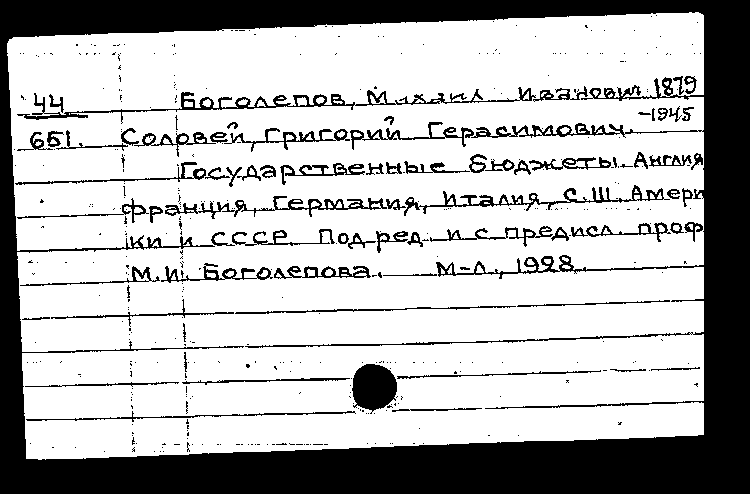 44 Боголепов, Михаил Иванович 1879
-1945
651. Соловей, Григорий Герасимович.
Государственные бюджеты. Англия
Франция, Германия, Италия, С.Ш. Амери
ки и СССР. Под ред. и с предисл. проф
М.И. Боголепова. М-Л., 1928.